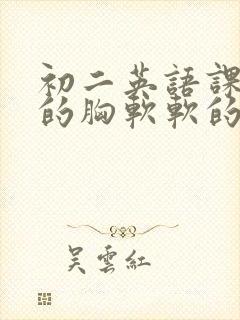 初二英語課
的胸軟軟的
吴雲紅